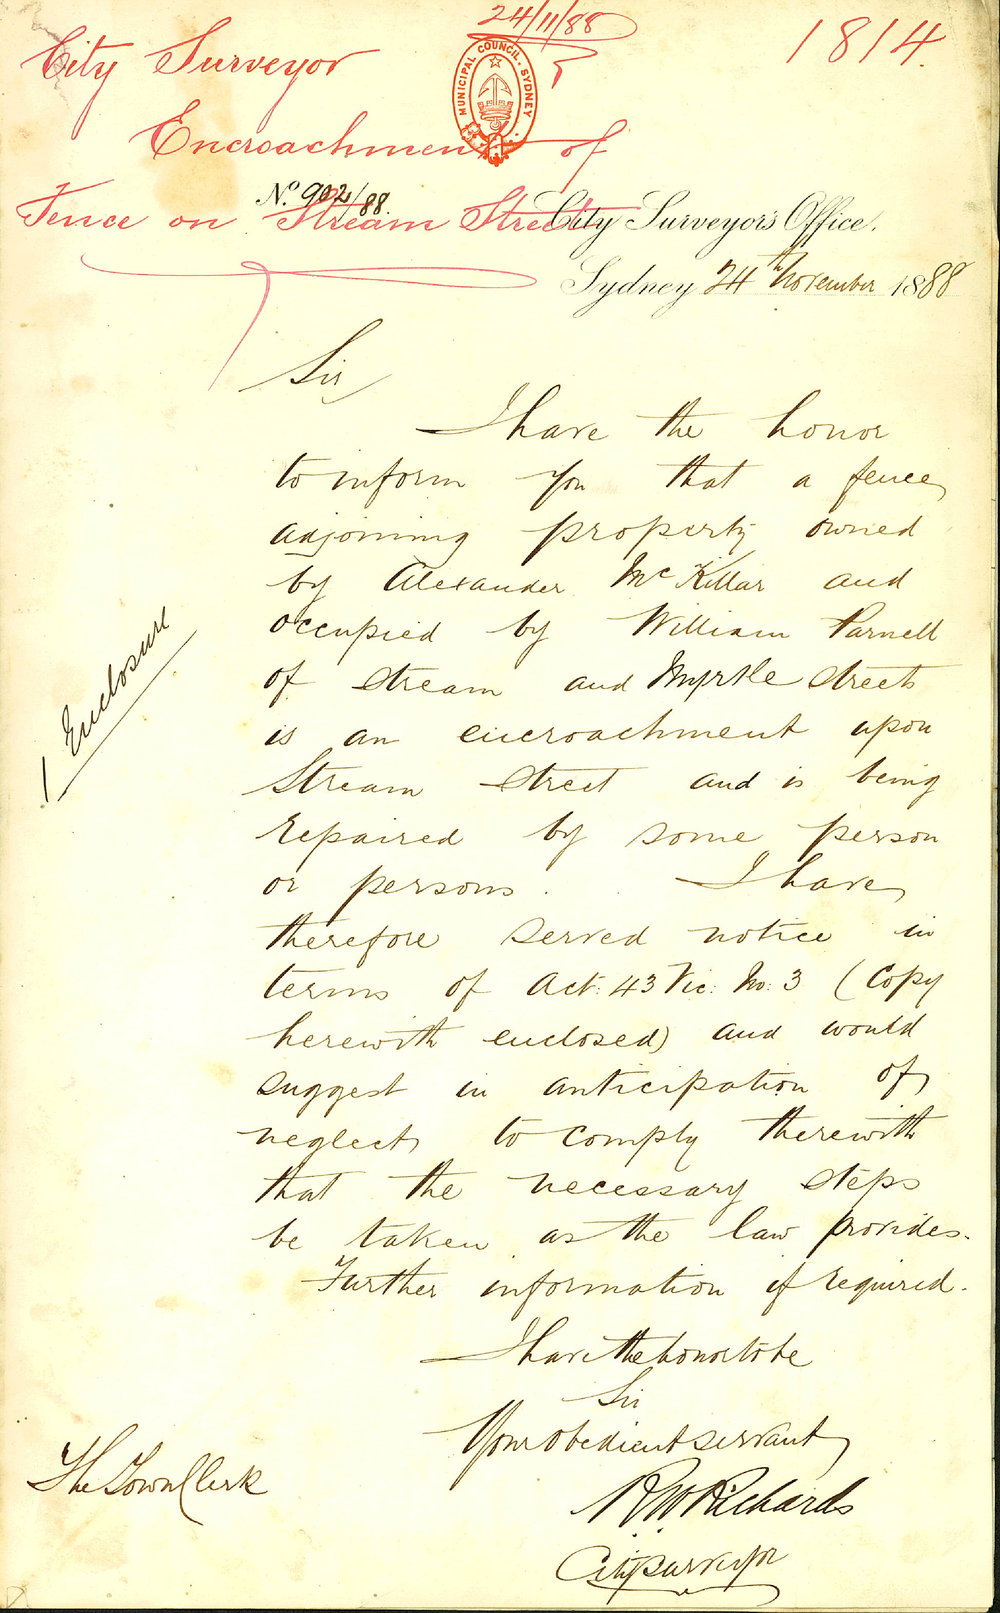 24/11/88
1814.
City Surveyor
MUNICIPAL COUNCIL. SYDNEY
Encroachment of
Fence on Stream Street
No. 902/88
City Surveyor's Office.
Sydney 24th November 1888
Sir
I have the honor
to inform you that a fence
adjoining property owned
by Alexander McKillar and
occupied by William Parnell
of Stream and Myrtle Streets
is an encroachment upon
Stream Street and is being
repaired by some person
or persons. I have
therefore served notice in
terms of Act: 43 Vic: No: 3 (Copy
herewith enclosed) and would
suggest in anticipation of
neglect to comply therewith
that the necessary steps
be taken as the law provides.
Further information if required.
1 Enclosure
I have the honor to be
Sir
Your obedient servant
The Town Clerk
R W Richards
City Surveyor